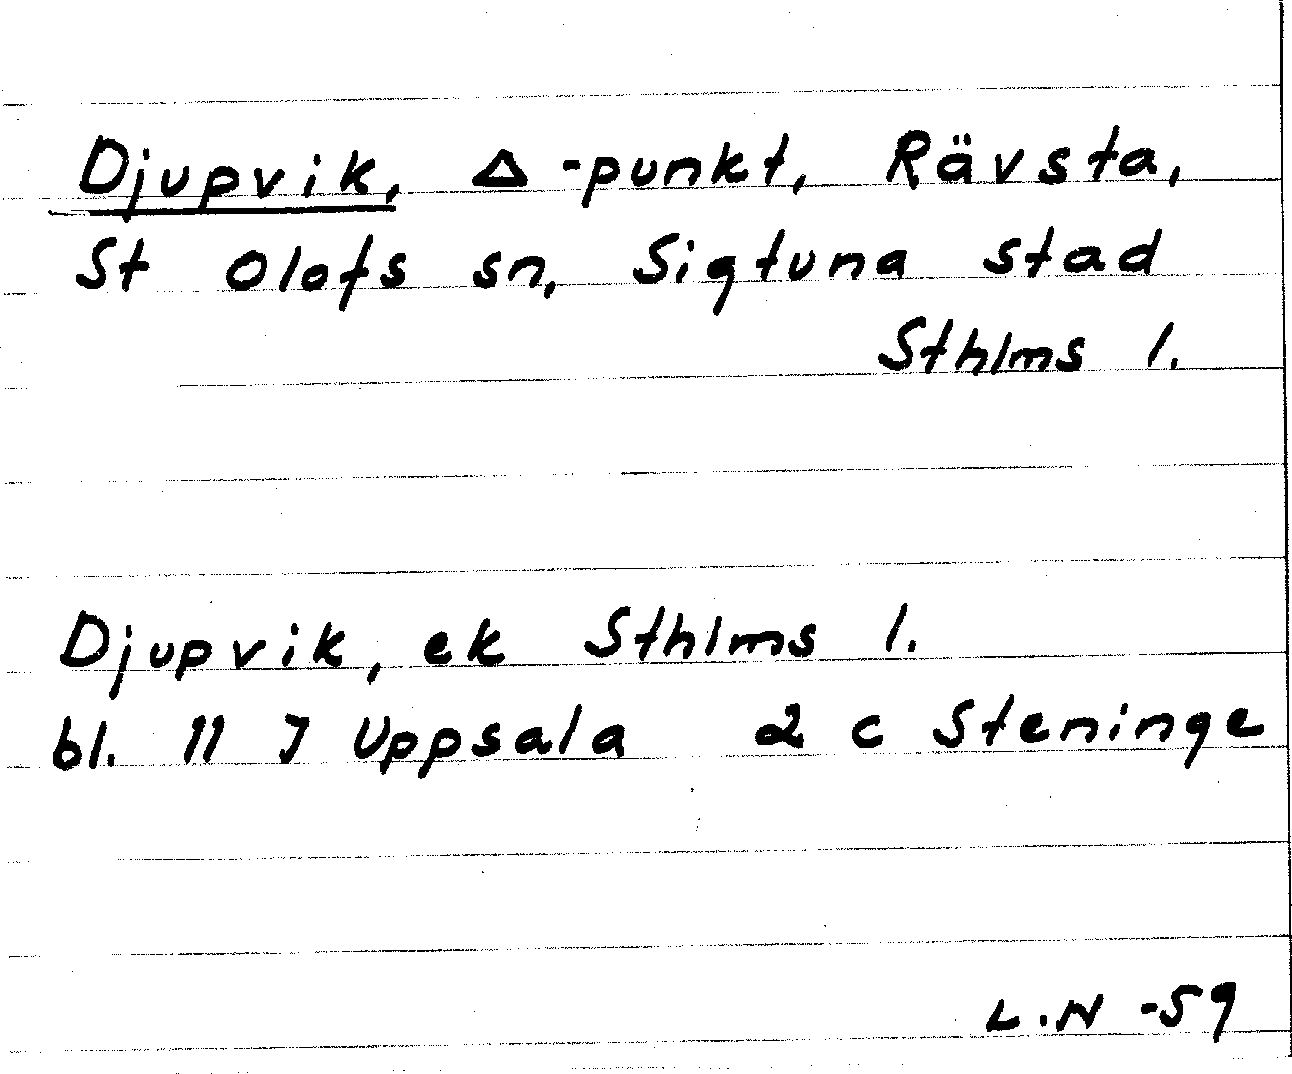 Djupvik, Δ-punkt, Rävsta,
St Olofs sn, Sigtuna stad
Sthlms l.
Djupvik, ek Sthlms l.
bl. 11 J Uppsala 2 c Steninge
L.N -59